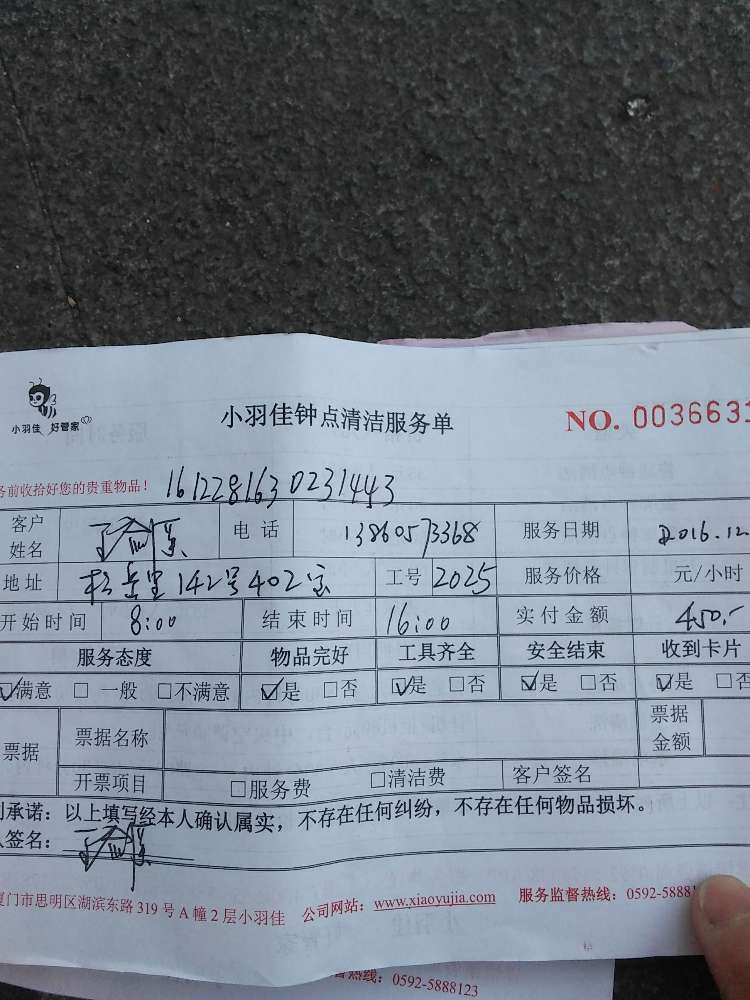 小羽佳 好管家
小羽佳钟点清洁服务单 NO. 0036631
务前收拾好您的贵重物品! 1612281630231443
客户姓名 电话 13860573368 服务日期 2016.12
地址 142号402室 工号 2025 服务价格 元/小时
开始时间 8:00 结束时间 16:00 实付金额 450.-
服务态度 物品完好 工具齐全 安全结束 收到卡片
☑满意 □一般 □不满意 ☑是 □否 ☑是 □否 ☑是 □否 ☑是 □否
票据 票据名称 票据金额
开票项目 □服务费 □清洁费 客户签名
承诺:以上填写经本人确认属实,不存在任何纠纷,不存在任何物品损坏。
签名:
厦门市思明区湖滨东路319号A幢2层小羽佳 公司网站:www.xiaoyujia.com 服务监督热线:0592-5888
热线:0592-5888123